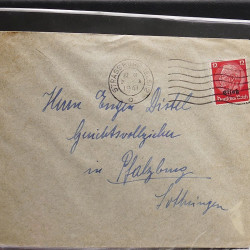 STRASSBURG
1941
12 12
Elsaß
Deutsches Reich
Herrn Eugen Distel
Gerichtsvollzieher
in Pfalzburg
Lothringen